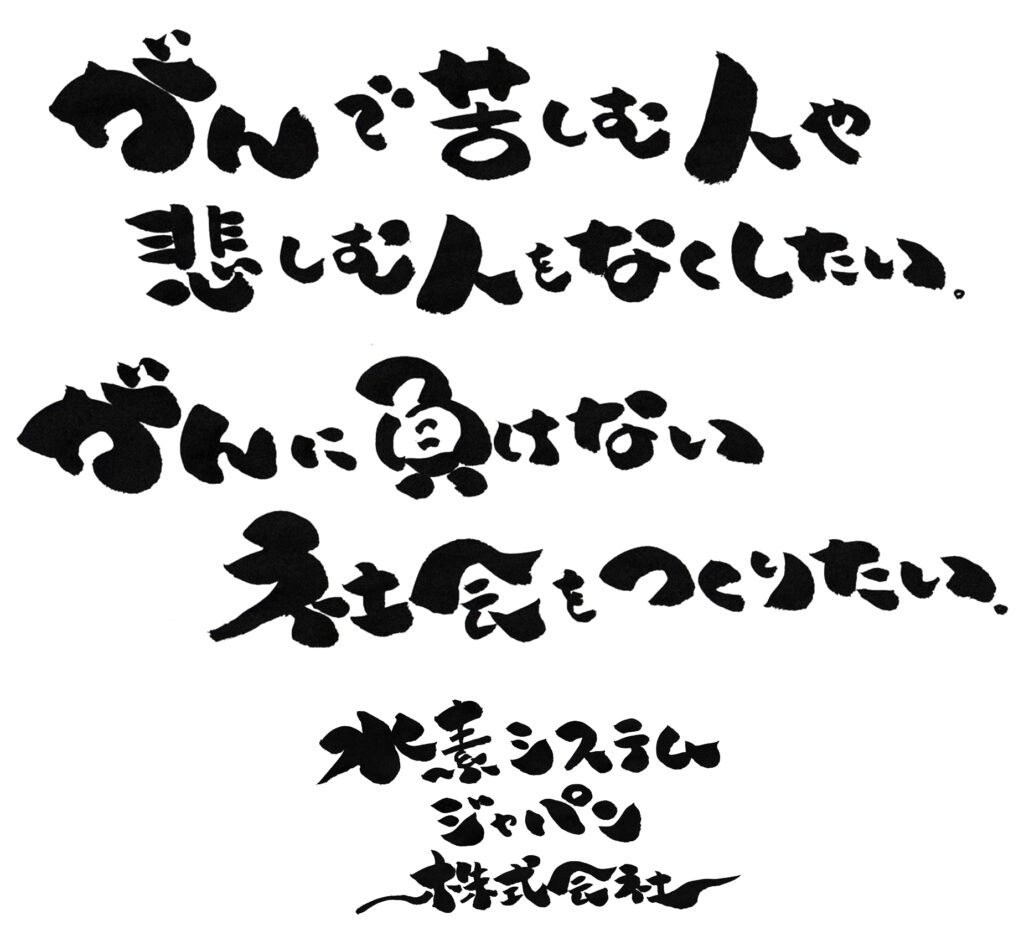 がんで苦しむ人や
悲しむ人をなくしたい。
がんに負けない
社会をつくりたい。
水素システム
ジャパン
株式会社